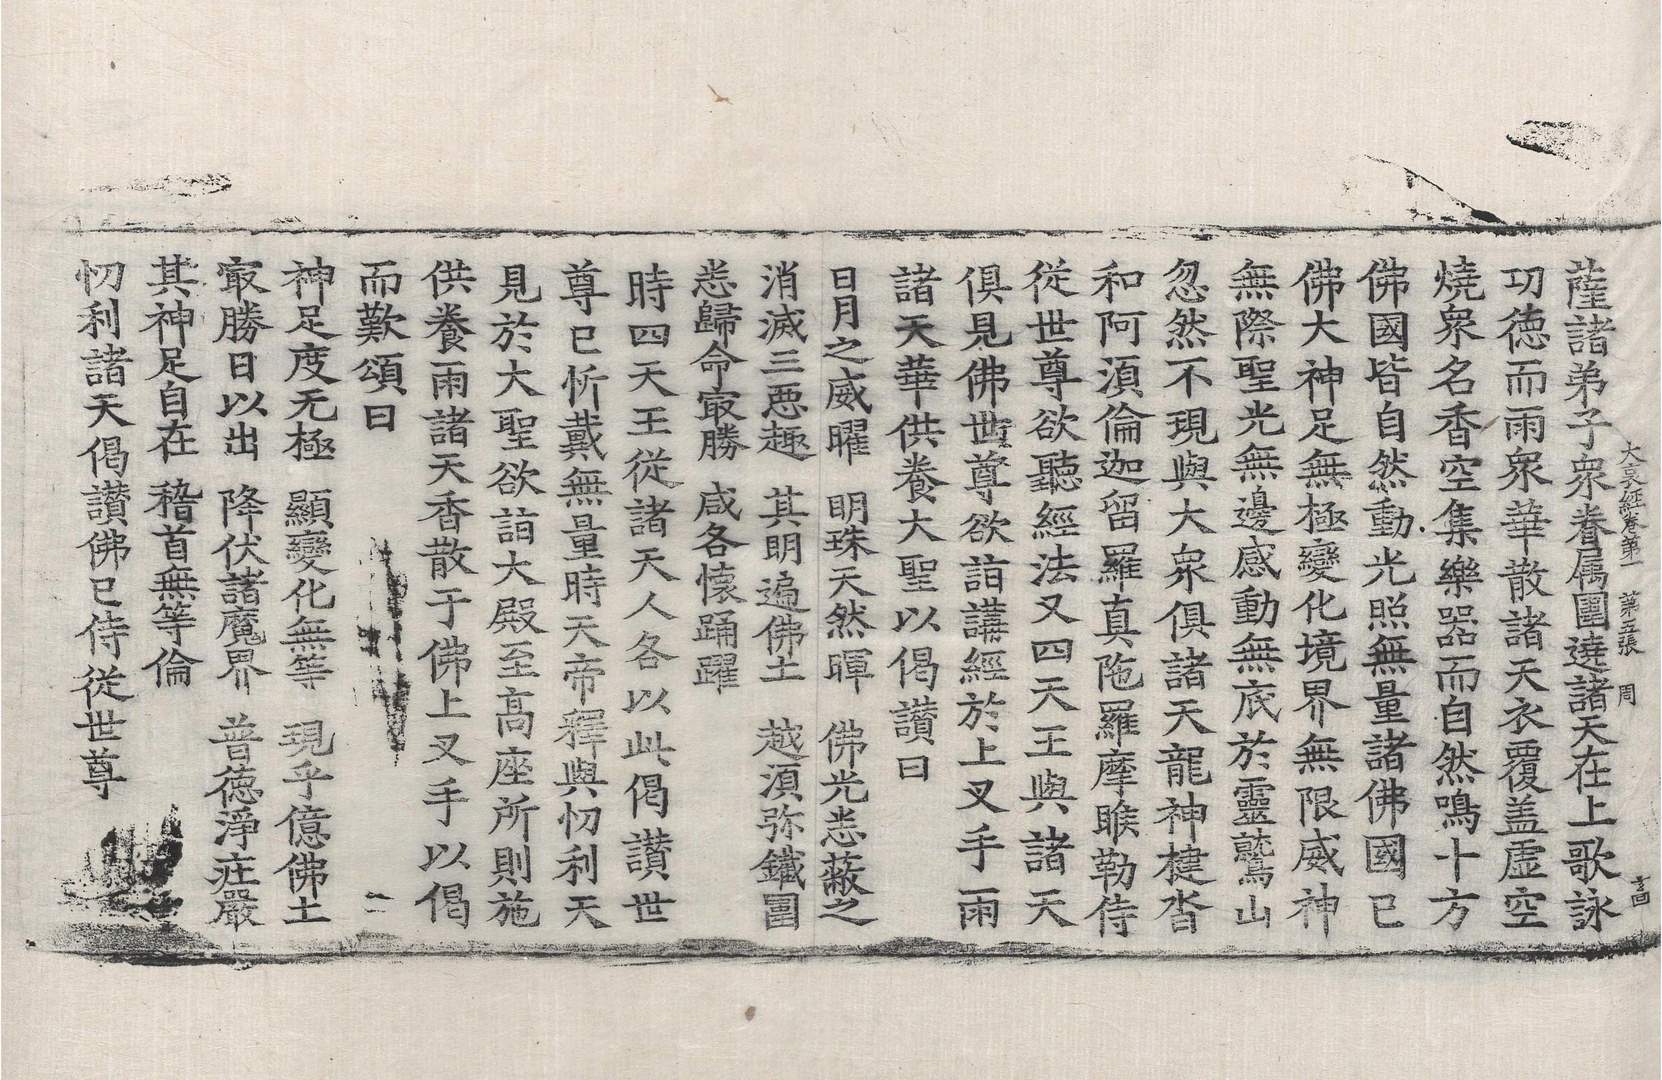 大哀經卷第一　第五張　周
薩諸弟子衆眷属圍遶諸天在上歌詠
功德而雨衆華散諸天衣覆盖虚空
燒衆名香空集樂器而自然鳴十方
佛國皆自然動光照無量諸佛國已
佛大神足無極變化境界無限威神
無際聖光無邊感動無底於靈鷲山
忽然不現與大衆俱諸天龍神揵沓
和阿湏倫迦留羅真陁羅摩睺勒侍
從世尊欲聽經法又四天王與諸天
俱見佛世尊欲詣講經於上叉手雨
諸天華供養大聖以偈讃曰
日月之威曜　明珠天然暉　佛光悉蔽之
消滅三惡趣　其明遍佛土　越湏弥鐵圍
悉歸命㝡勝　咸各懷踊躍
時四天王從諸天人各以此偈讃世
尊已忻戴無量時天帝釋與忉利天
見於大聖欲詣大殿至髙座所則施
供養雨諸天香散于佛上叉手以偈
而歎頌曰
神足度无極　顯變化無等　現乎億佛土
㝡勝日以出　降伏諸魔界　普德淨莊嚴
其神足自在　稽首無等倫
忉利諸天偈讃佛已侍從世尊